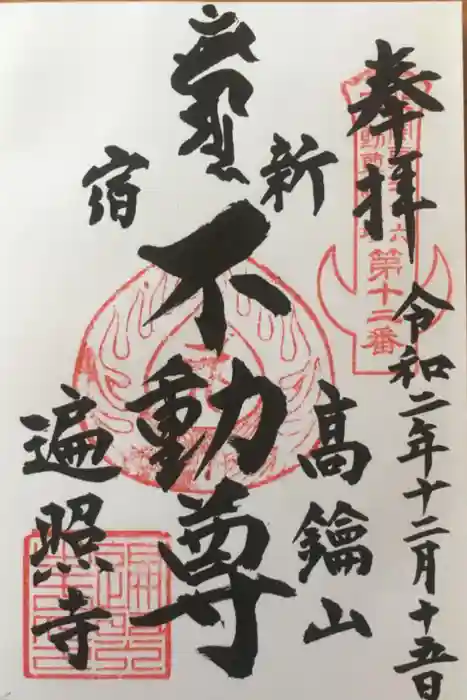 奉拝
令和二年十二月十五日
第十二番
新宿
不動尊
高鑰山
遍照寺